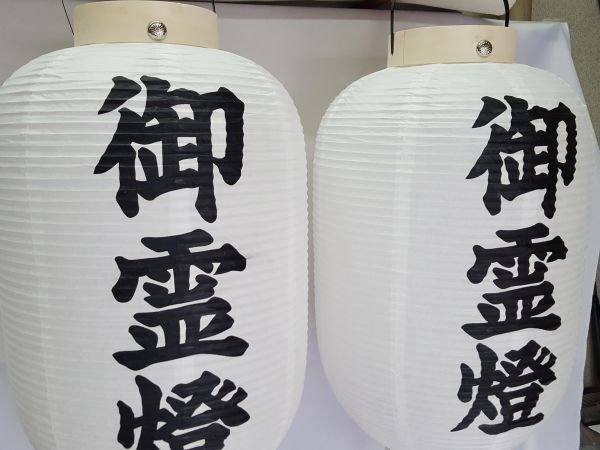 御霊燈
御霊燈